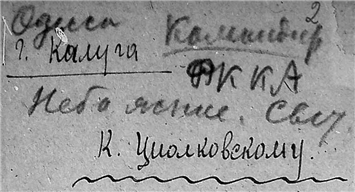 Одиса
г. Калуга
2
Командир
РККА
Небо ясние. Свлу
К. Циолковскому.